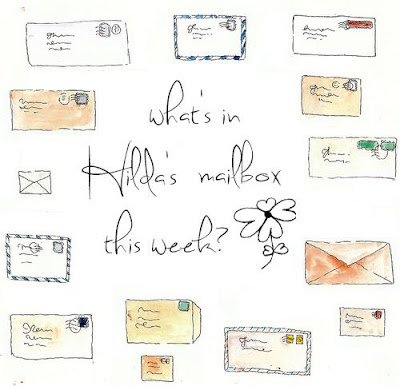 what's in
Hilda's mailbox
this week?